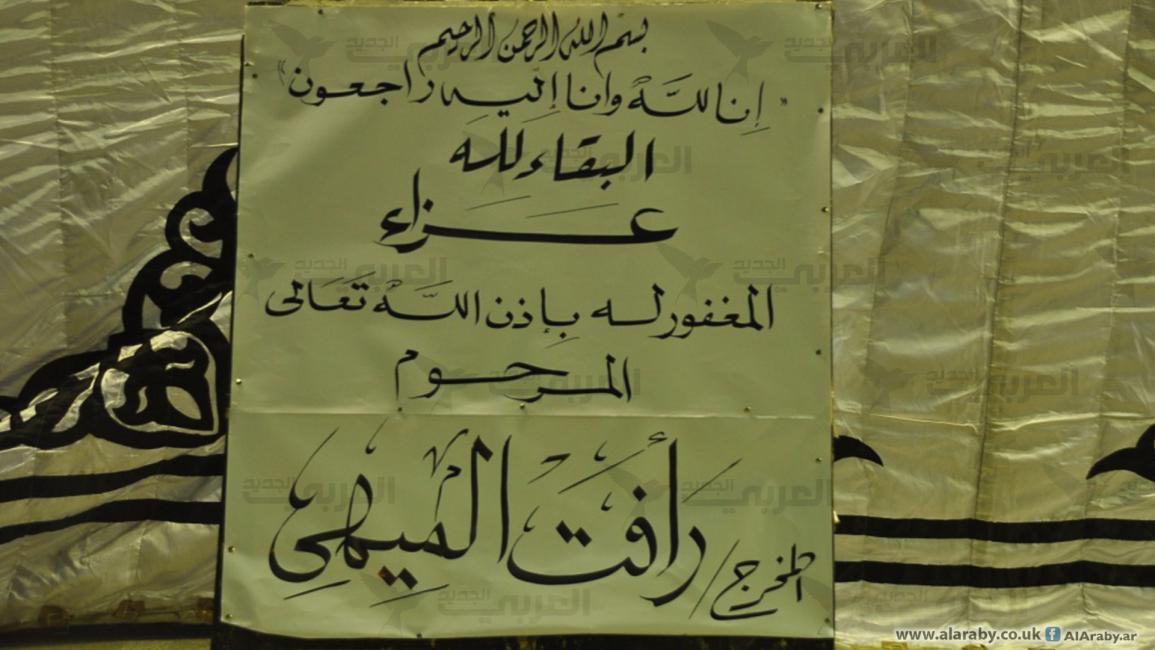 بسم الله الرحمن الرحيم
« إنا للَّهْ وانا إليه راجعون »
البقاء لله
عزاء
المغفور له بإذن اللَّهْ تَعَالى
المرحوم
المخرج / رأفت الميهى
العربي الجديد
www.alaraby.co.uk f AlAraby.ar